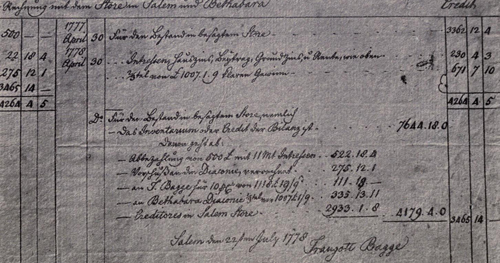 Rechnung mit dem Store in Salem und Bethabara Credit
500 — — 1777 April 30 Für den Bestand besagten Store 3362 12 4
22 18 4 1778 April 30 Intressen, Hauszins, Beytrag, Grundzins, u Rente, wie oben 230 4 3
275 12 1 ⅔tel von £ 1007.1.9 klaren Gewinn 671 7 10
3465 14 —
4264 4 5 4264 4 5
Do Für den Bestand in besagten Store, nemlich
— Das Inventarium oder Credit der Bilanz ist 7644.18.0
Davon geht ab:
— Abbezahlung von 500 £ mit 11 Mt Intressen 522.18.4
— Vorschuß an die Diaconie, 275.12.1
— an T. Bagge für 10 pC von 1118 £ 19/9 111.18.—
— an Bethabara Diaconie ⅓tel von 1007 £ 1/9 335.13.11
— Creditores in Salem Store 2933.1.8 4179.4.0 3465 14 —
Salem den 22sten July 1778
Traugott Bagge